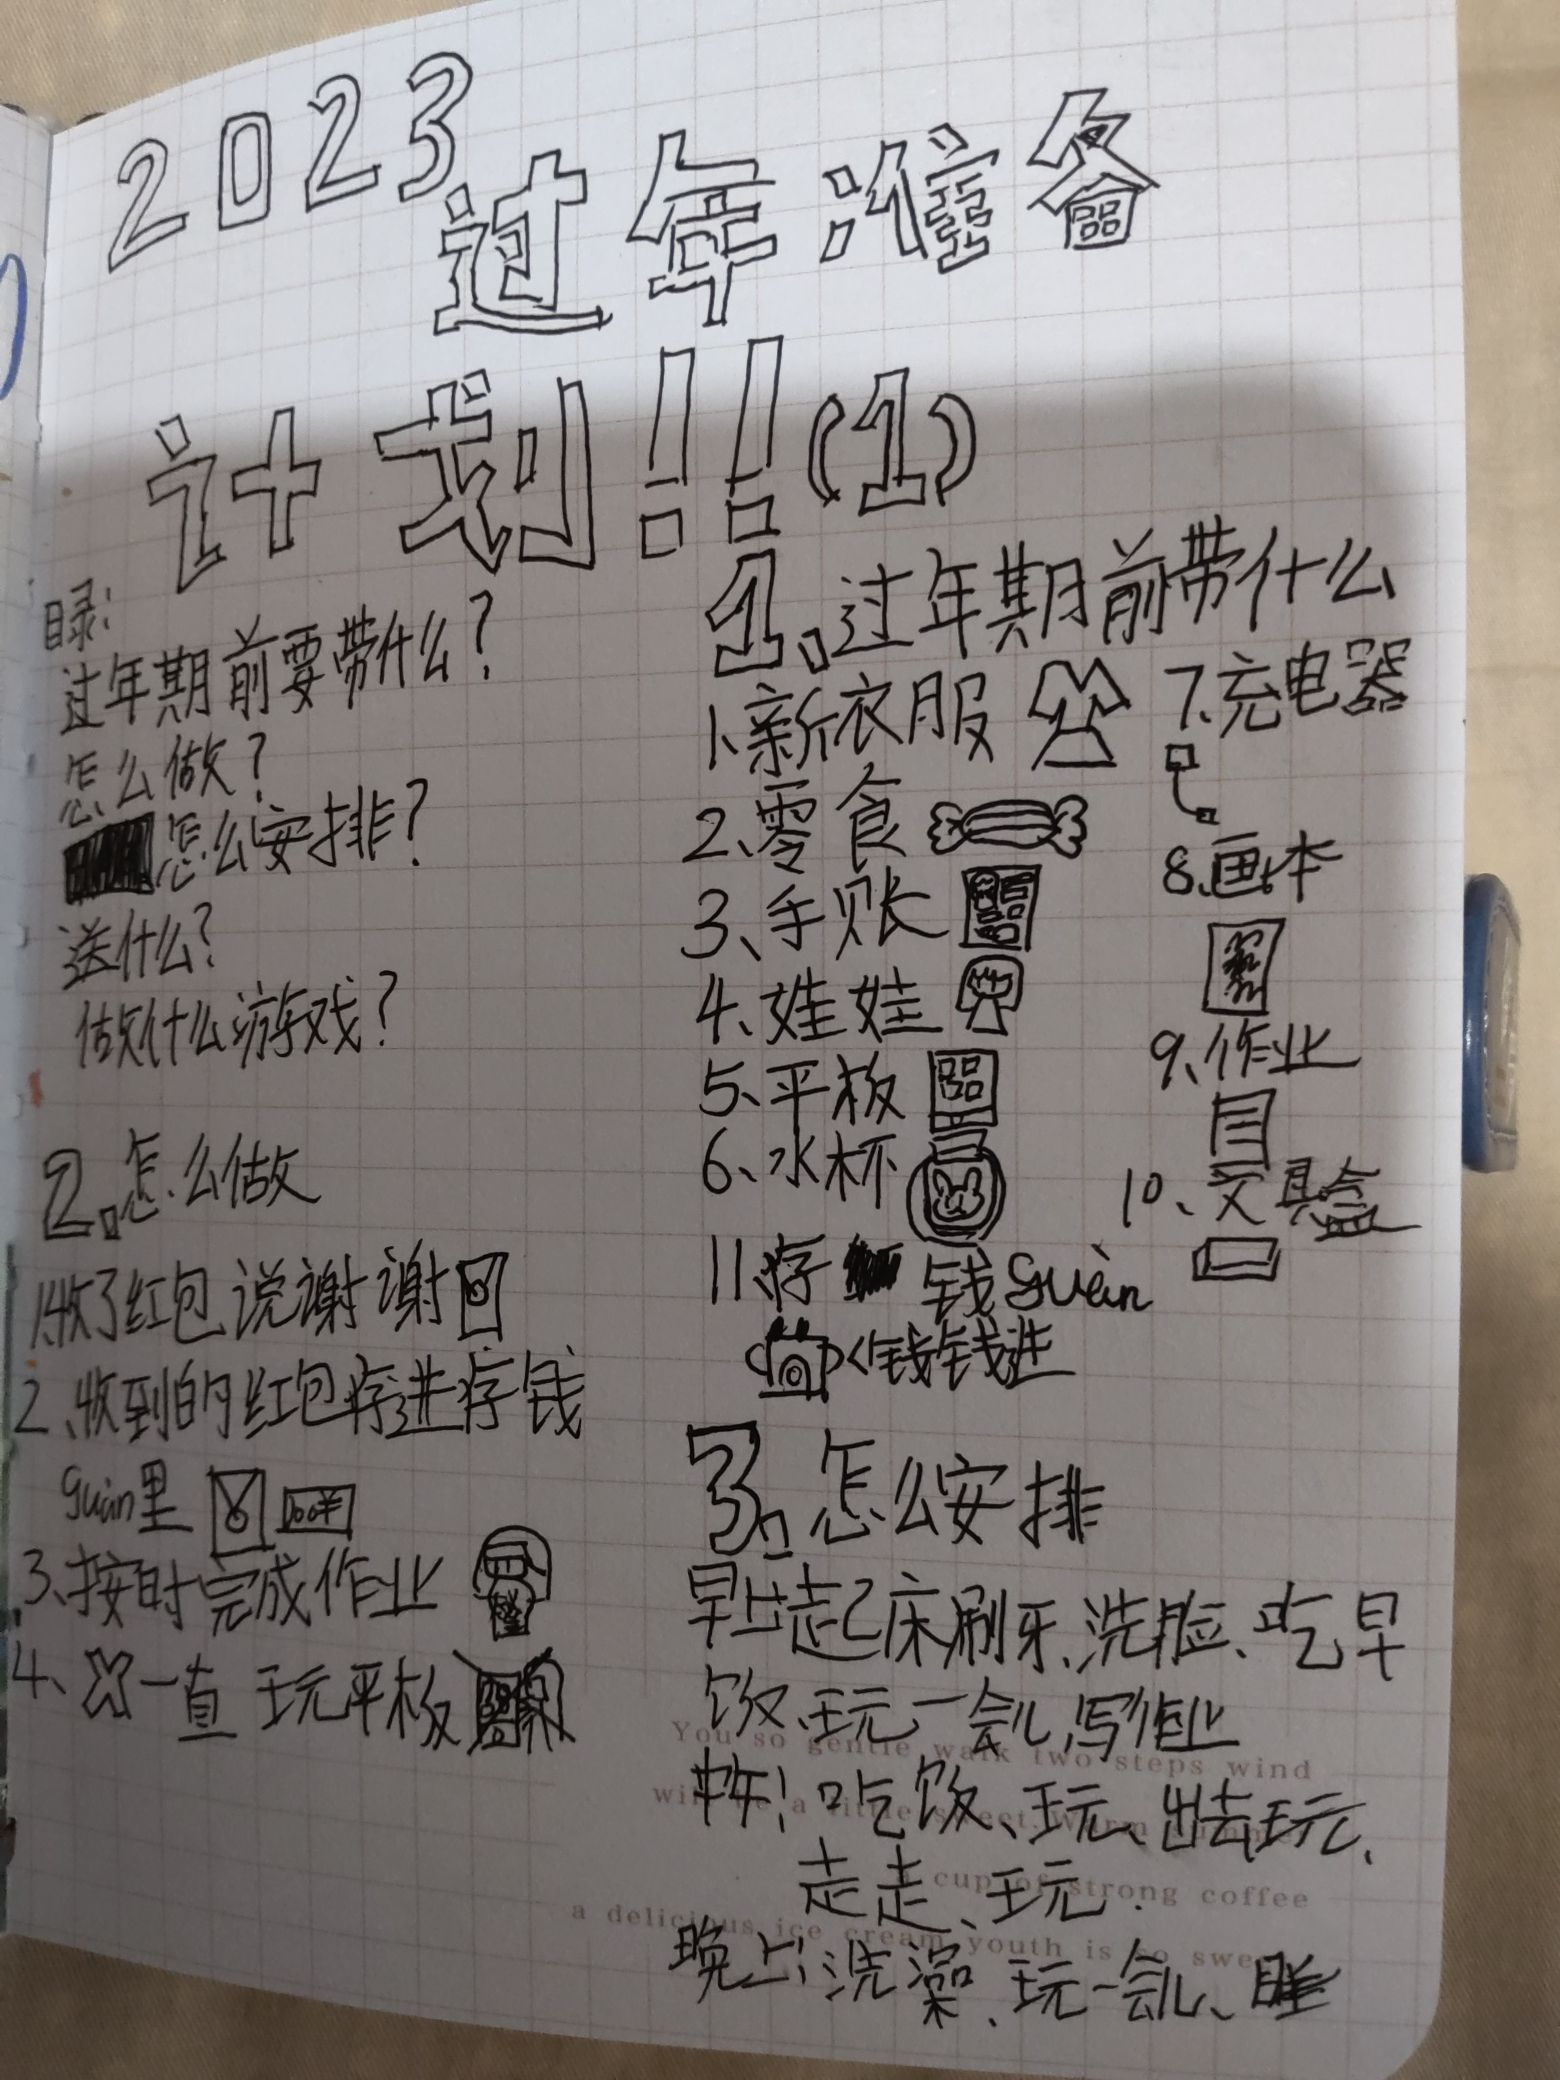 2023
过年准备
计划!!(1)
目录:
过年期前要带什么?
怎么做?
怎么安排?
送什么?
做什么游戏?
1.过年期前带什么
1、新衣服
2、零食
3、手账
4、娃娃
5、平板
6、水杯
7、充电器
8、画本
9、作业
10、文具盒
11、存钱guàn
钱钱进
2.怎么做
1、收了红包说谢谢
2、收到的红包存进存钱
guàn里
3、按时完成作业
4、一直玩平板
3.怎么安排
早上:起床刷牙、洗脸、吃早
饭、玩一会儿,写作业
中午!吃饭、玩、出去玩、
走走、玩.
晚上:洗澡、玩一会儿、睡
You so gentle walk two steps wind
cup of strong coffee
a delicious ice cream youth is so